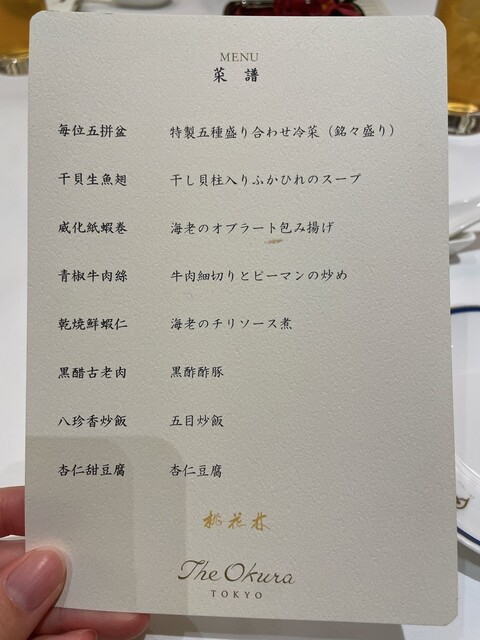 MENU
菜 譜
每位五拼盆 特製五種盛り合わせ冷菜（銘々盛り）
干貝生魚翅 干し貝柱入りふかひれのスープ
威化紙蝦巻 海老のオブラート包み揚げ
青椒牛肉絲 牛肉細切りとピーマンの炒め
乾燒鮮蝦仁 海老のチリソース煮
黒醋古老肉 黒酢酢豚
八珍香炒飯 五目炒飯
杏仁甜豆腐 杏仁豆腐
桃花林
The Okura
TOKYO